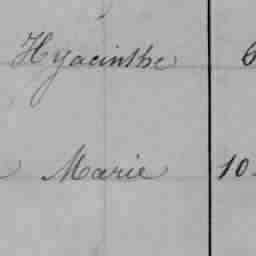 Hyacinthe 6
Marie 10